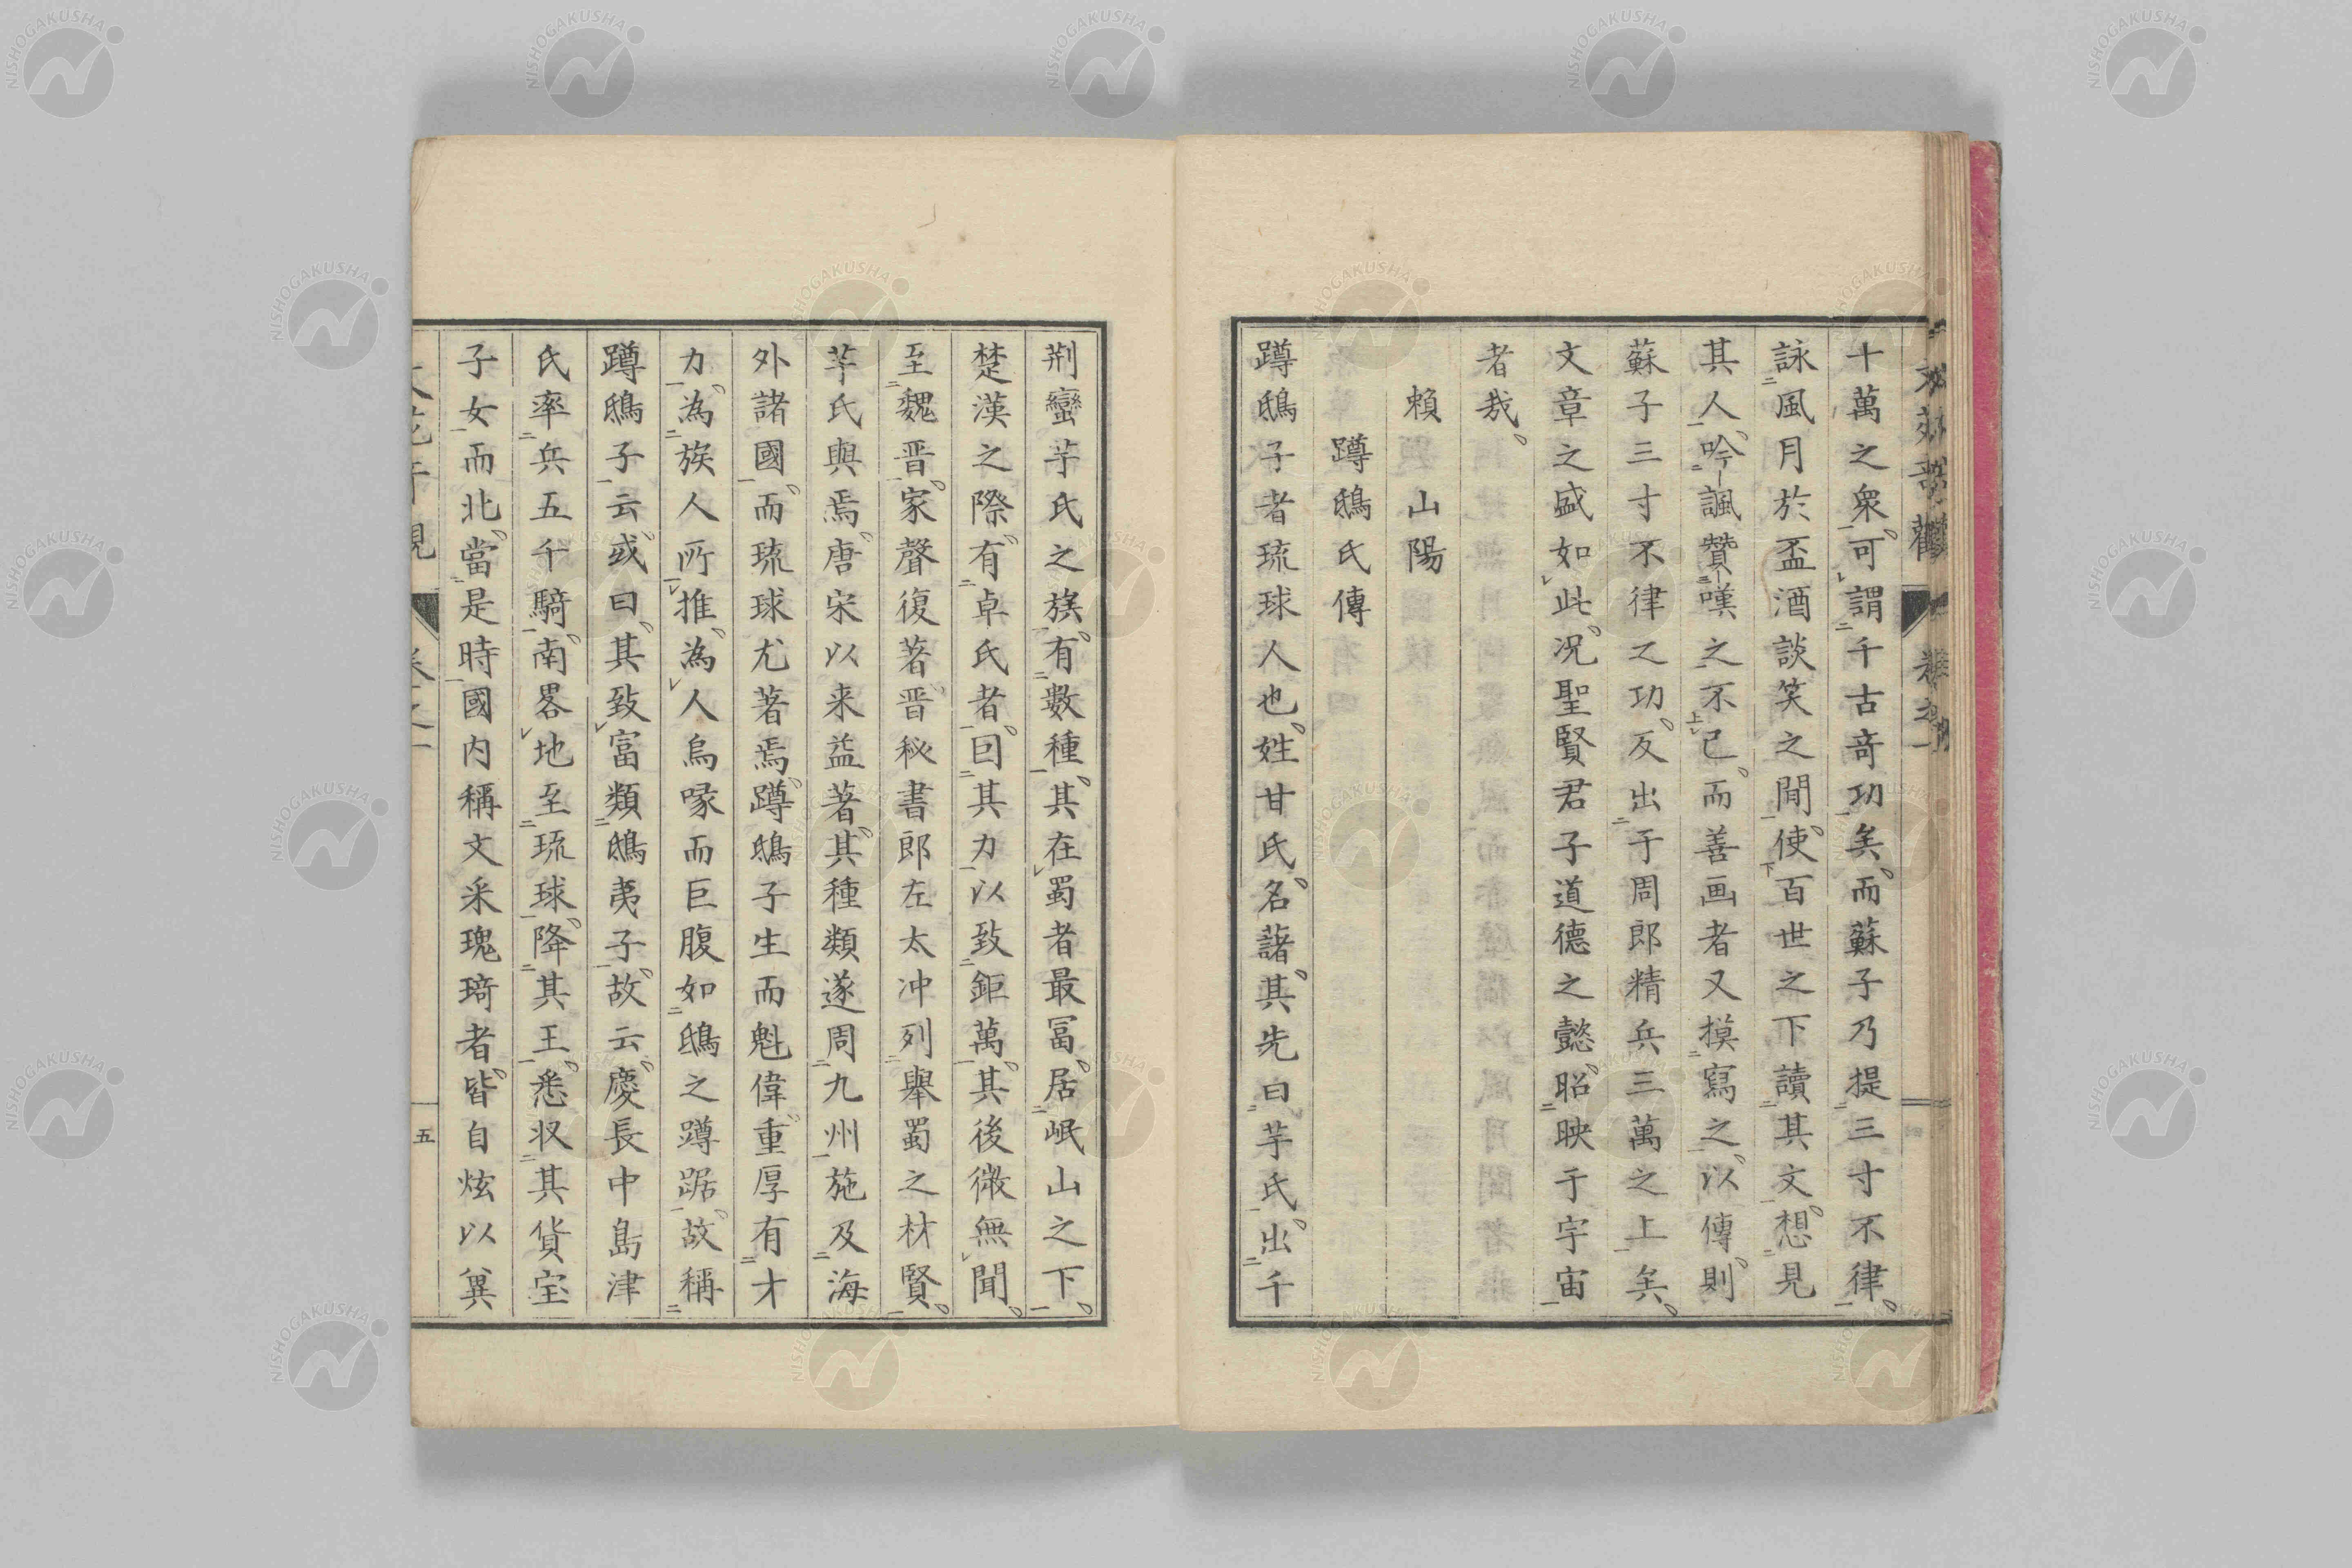 十萬之衆可謂千古奇功矣而蘇子乃提三寸不律
詠風月於盃酒談笑之間使百世之下讀其文想見
其人吟諷贊嘆之不已而善画者又摸寫之以傳則
蘇子三寸不律之功反出于周郎精兵三萬之上矣
文章之盛如此况聖賢君子道德之懿昭映于宇宙
者哉
賴山陽
蹲鴟氏傳
蹲鴟子者琉球人也姓甘氏名藷其先曰芋氏出千
荆蠻芋氏之族有數種其在蜀者最冨居岷山之下
楚漢之際有卓氏者因其力以致鉅萬其後微無聞
至魏晋家聲復著晋秘書郎左太冲列舉蜀之材賢
芋氏與焉唐宋以来益著其種類遂周九州施及海
外諸國而琉球尤著焉蹲鴟子生而魁偉重厚有才
力為族人所推為人烏喙而巨腹如鴟之蹲踞故稱
蹲鴟子云或曰其致富類鴟夷子故云慶長中島津
氏率兵五千騎南畧地至琉球降其王悉収其貨宝
子女而北當是時國内稱文采瑰琦者皆自炫以冀
五
NISHOGAKUSHA